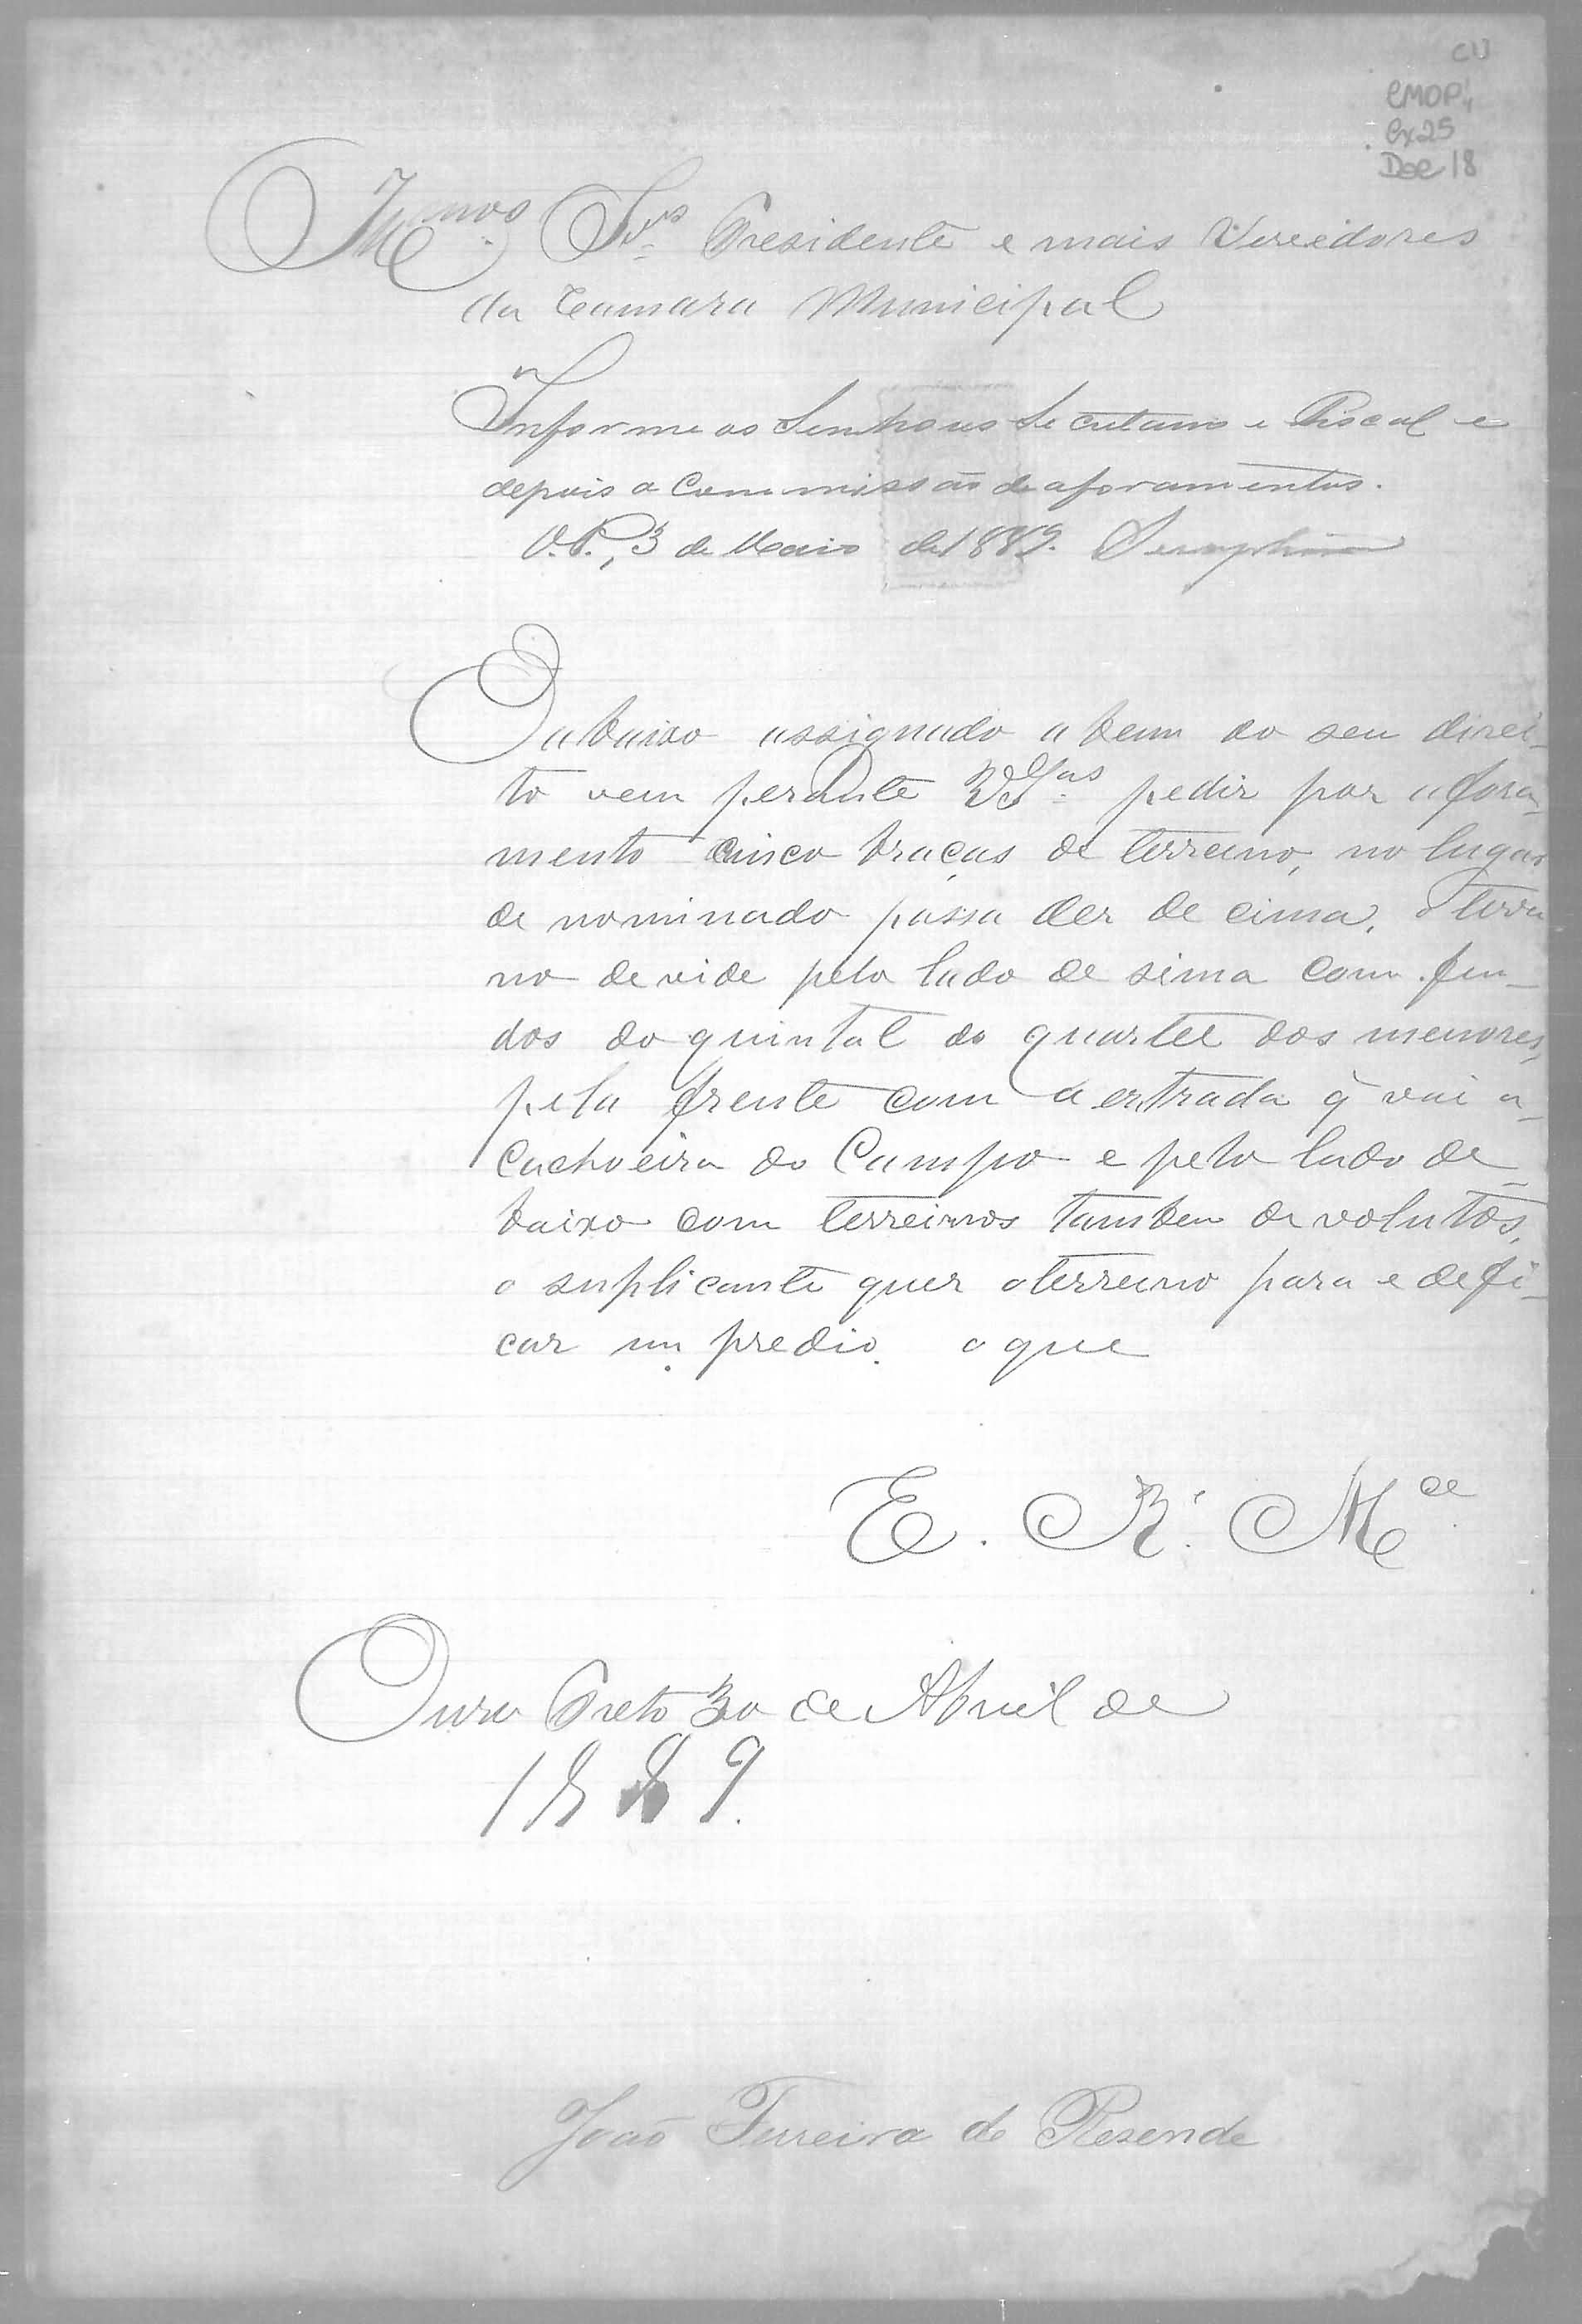 CU
CMOP
Cx25
Doc 18
Illmos Srs Presidente e mais Vereedores
da Camara Municipal
Informe os Senhores Secretario e Fiscal e
depois a Commissão de aforamentos.
O. P., 3 de Maio de 1889. Seraphim
O abaixo assignado a bem do seu direi-
to vem perante VSas pedir por afora-
mento cinco braças de terreino, no lugar
de nominado passa dez de cima, o terre
no devide pelo lado de sima com fun-
dos do quintal do quartel dos menores,
pela frente com a estrada q̃ vai a-
Cachoeira do Campo e pelo lado de-
baixo com terreinos tambem devolutos,
o suplicante quer o terreino para edefi-
car um predio. o que
E. R. Mce
Ouro Preto 30 de Abril de
1889.
João Ferreira de Resende